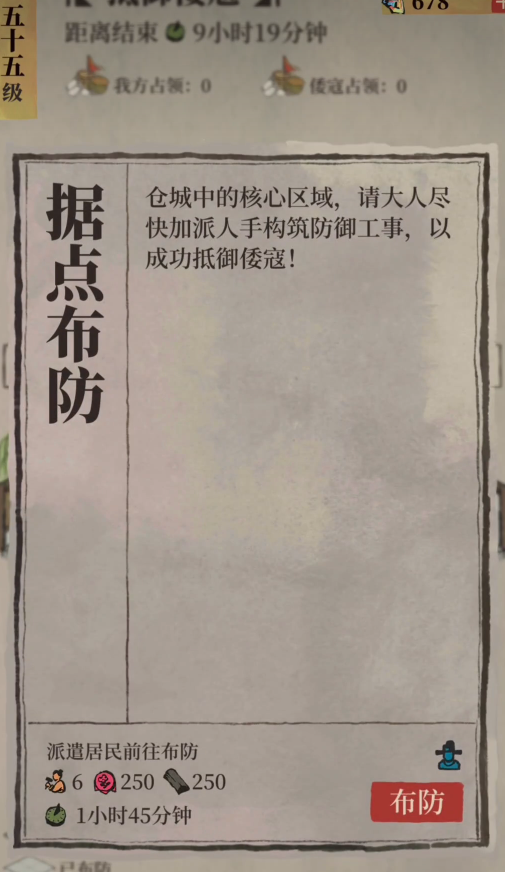 五十五级
678
距离结束 9小时19分钟
我方占领：0 倭寇占领：0
据点布防
仓城中的核心区域，请大人尽
快加派人手构筑防御工事，以
成功抵御倭寇！
派遣居民前往布防
6 250 250
1小时45分钟
布防
已布防